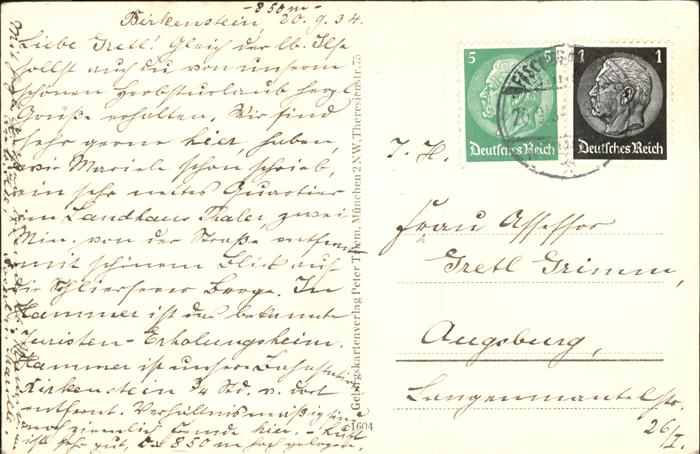 - 850 m -
Birkenstein, 20.9.34.
Liebe Gretl! Gleich der lb. Ilse
sollst auch du von unserm
schönen Herbsturlaub herzl.
Grüße erhalten. Wir sind
sehr gerne hier, haben,
wie Mariele schon schrieb,
ein sehr nettes Quartier
im Landhaus Thaler, zwei
Min. von der Straße entfernt
mit schönem Blick auf
die Schlierseeer Berge. In
Hammer ist das bekannte
Juristen-Erholungsheim.
Hammer ist unsere Bahnstation
Birkenstein 3/4 Std. v. dort
entfernt. Verhältnismäßig sind
noch ziemlich Fremde hier. - Luft
ist sehr gut, da 850 m hoch gelegen.
Gebirgskartenverlag Peter Them, München 2 N.W, Theresienstr. 75
1604
5
Deutsches Reich
1 1
Deutsches Reich
I. H.
Frau Assessor
Gretl Grimm,
Augsburg,
Langenmantelstr.
26/I.